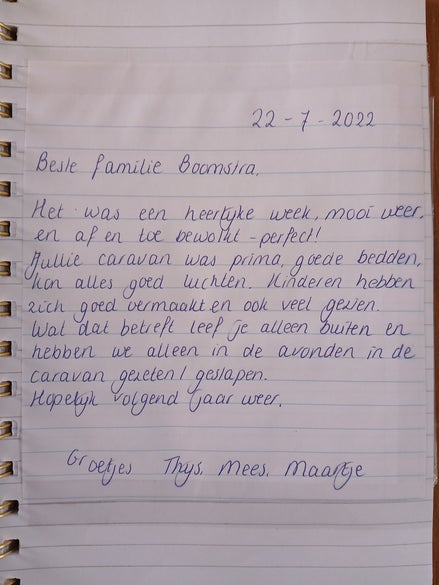 22-7-2022
Beste familie Boomstra,
Het was een heerlijke week, mooi weer,
en af en toe bewolkt - perfect!
Jullie caravan was prima, goede bedden,
kon alles goed luchten. Kinderen hebben
zich goed vermaakt en ook veel gezien.
Wat dat betreft leef je alleen buiten en
hebben we alleen in de avonden in de
caravan gezeten/geslapen.
Hopelijk volgend jaar weer.
Groetjes Thys, Mees, Maartje